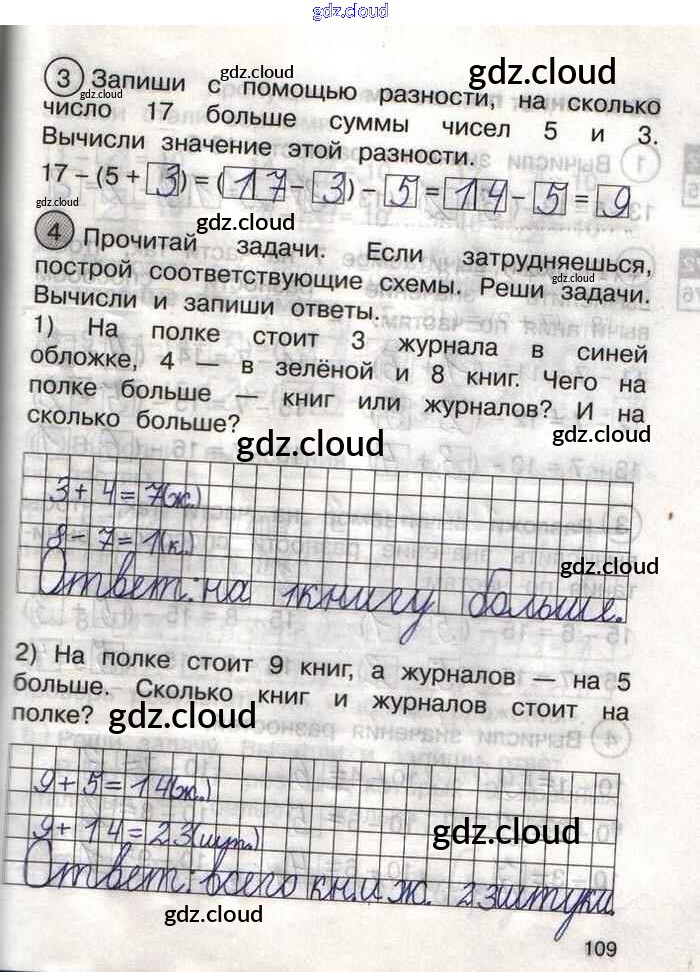 gdz.cloud
3 Запиши с помощью разности, на сколько
gdz.cloud
gdz.cloud
gdz.cloud
число 17 больше суммы чисел 5 и 3.
Вычисли значение этой разности.
17 – (5 + 3) = (17 – 3) – 5 = 14 – 5 = 9
gdz.cloud
gdz.cloud
4 Прочитай задачи. Если затрудняешься,
построй соответствующие схемы. Реши задачи.
gdz.cloud
Вычисли и запиши ответы.
1) На полке стоит 3 журнала в синей
обложке, 4 — в зелёной и 8 книг. Чего на
полке больше — книг или журналов? И на
сколько больше?
gdz.cloud
gdz.cloud
3 + 4 = 7(ж.)
8 – 7 = 1(к.)
gdz.cloud
Ответ: на 1 книгу больше.
2) На полке стоит 9 книг, а журналов — на 5
больше. Сколько книг и журналов стоит на
полке?
gdz.cloud
9 + 5 = 14(ж.)
9 + 14 = 23(шт.)
gdz.cloud
Ответ: всего кн и ж. 23 штуки.
gdz.cloud
109